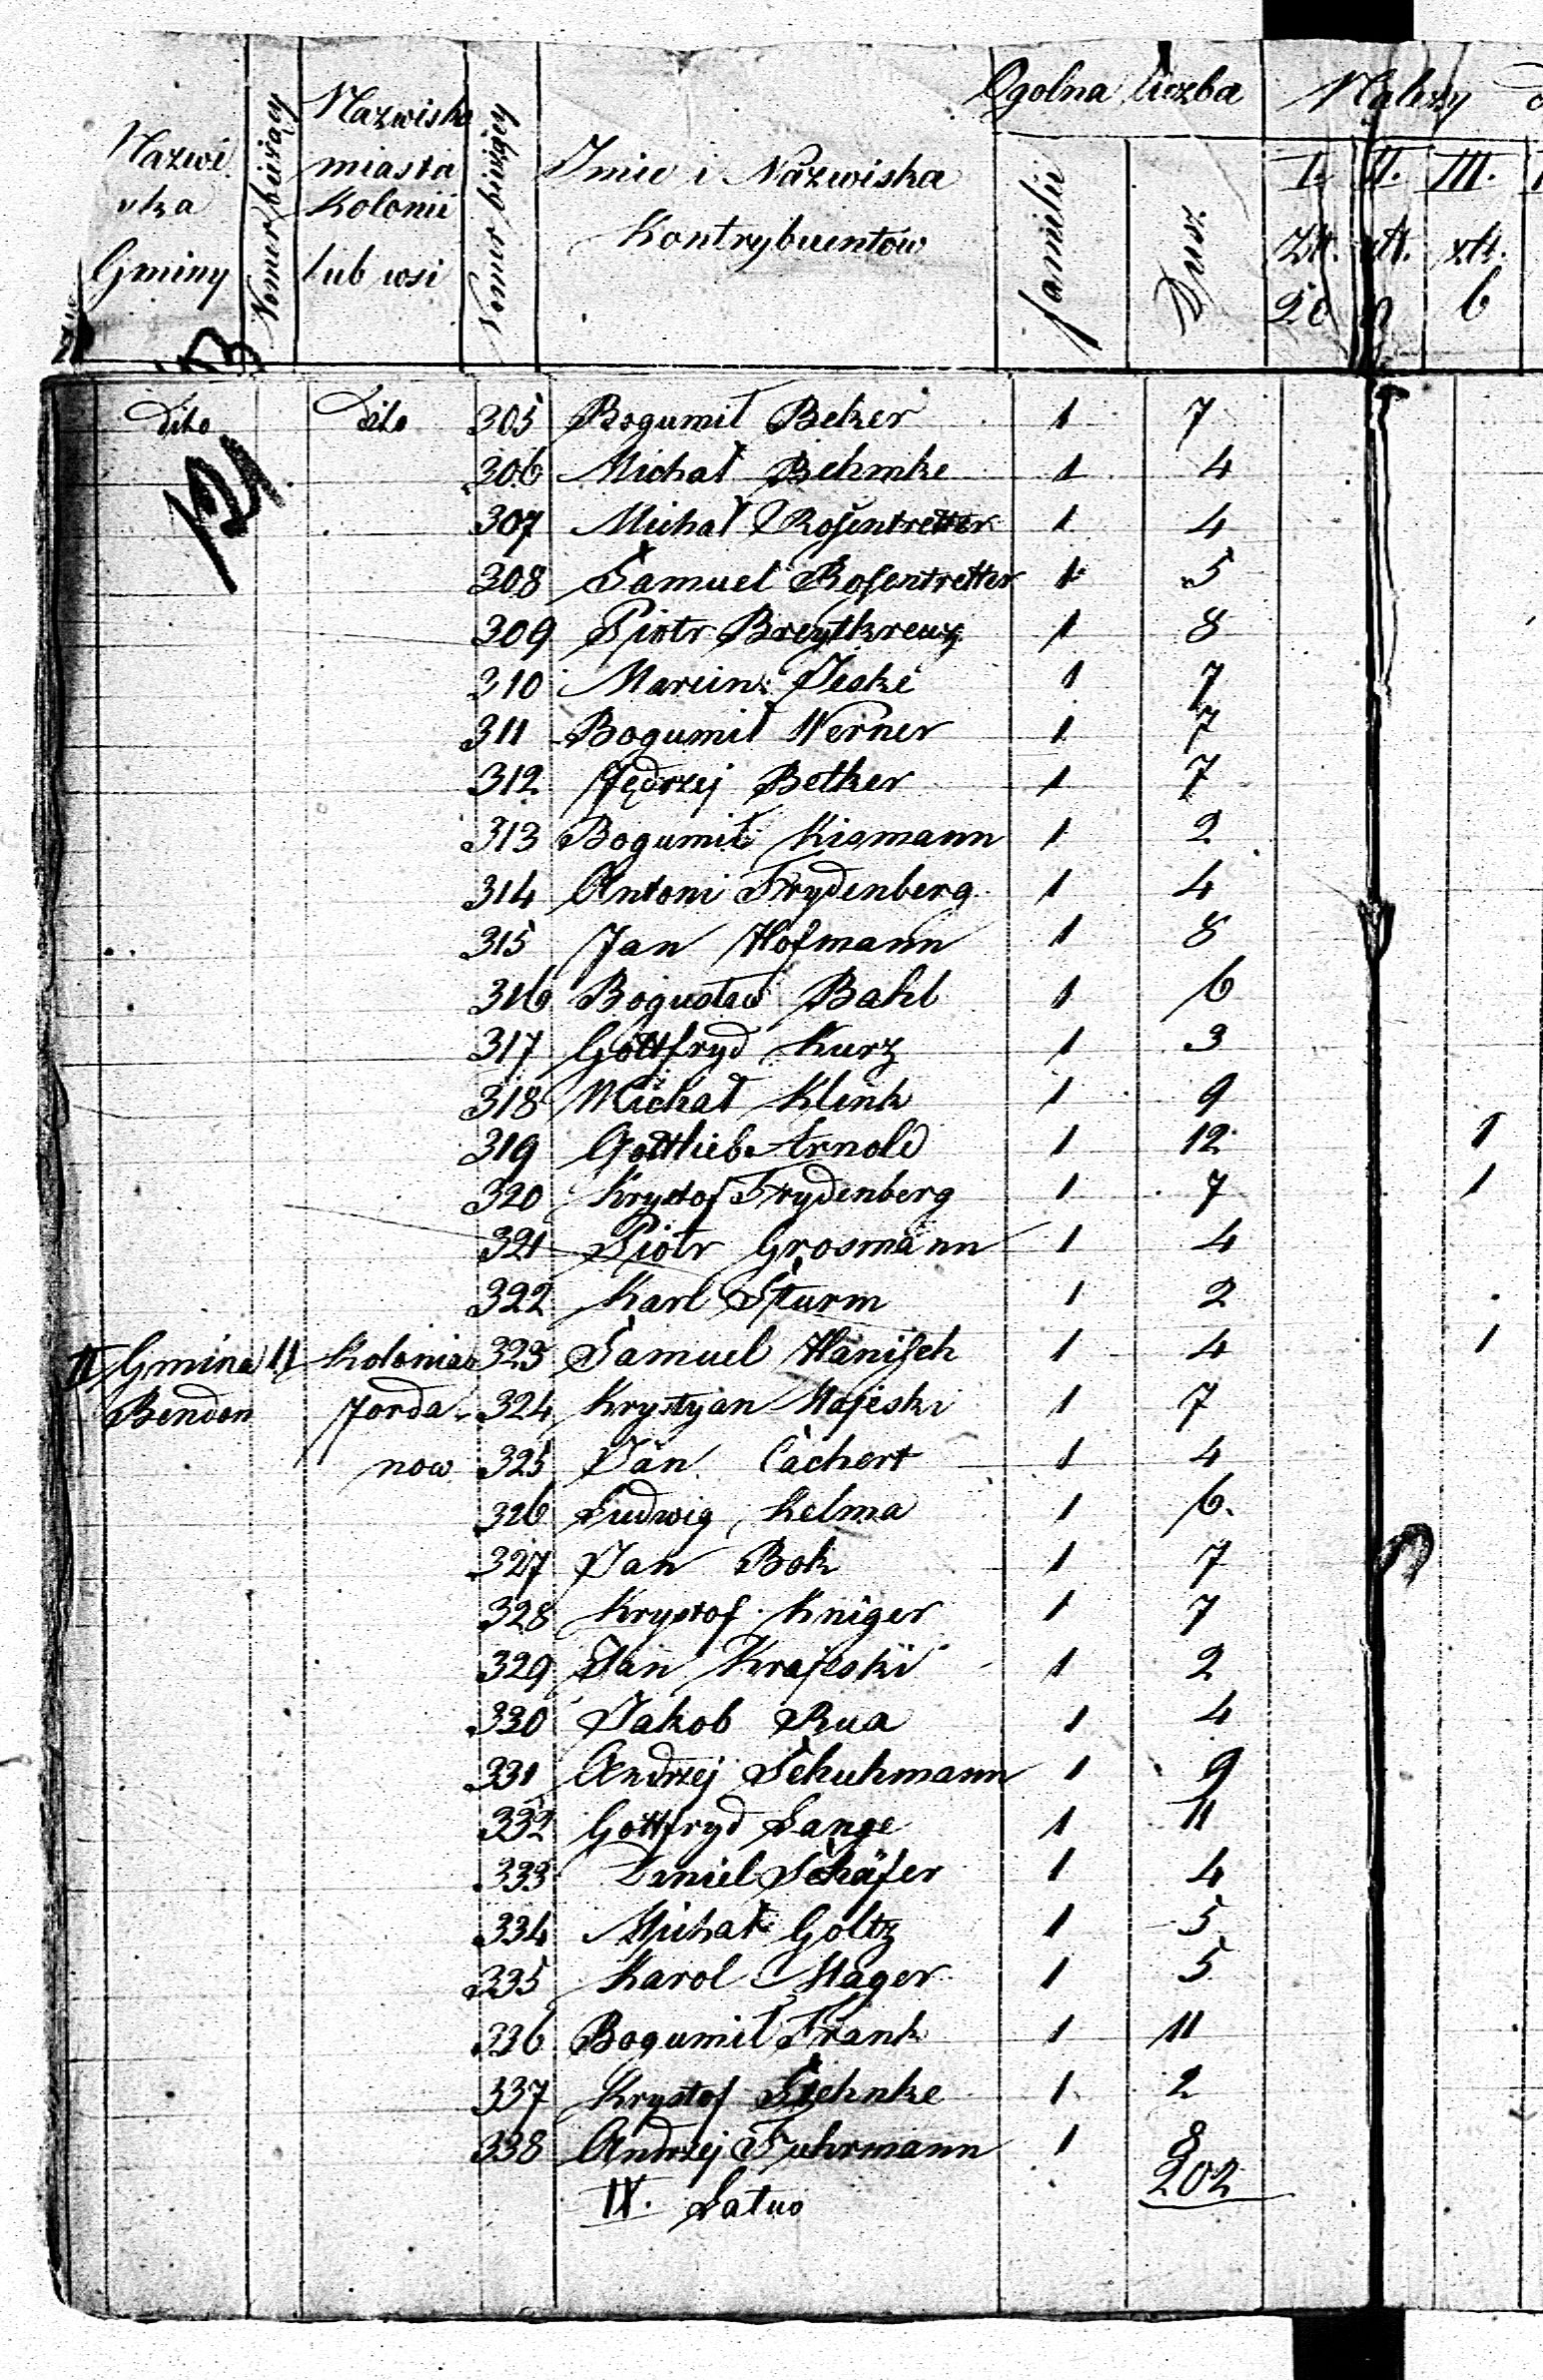 Nazwi
ska
Gminy
Nomer bieżący
Nazwiska
miasta
Kolonii
lub wsi
Nomer bieżący
Imie i Nazwiska
Kontrybuentów
Ogolna liczba
familii
Dusz.
Należy
I. II. III.
Zł. zł. zł.
20 6
121
Dito Dito 305 Bogumił Beker 1 7
306 Michał Behmke 1 4
307 Michał Rosentretter 1 4
308 Samuel Rosentretter 1 5
309 Piotr Breytkreuz 1 8
310 Marcin Jeske 1 7
311 Bogumił Werner 1 7
312 Jędrzej Betker 1 7
313 Bogumił Kismann 1 2
314 Antoni Frydenberg 1 4
315 Jan Hofmann 1 8
316 Bogusław Bahl 1 6
317 Gottfryd Kurz 1 3
318 Michał Klink 1 9
319 Gottlieb Arnold 1 12 1
320 Krystof Frydenberg 1 7 1
321 Piotr Grosmann 1 4
322 Karl Sturm 1 2
II Gmina 11 Kolonia 323 Samuel Hänisch 1 4 1
Bendon Jorda- 324 Krystyan Majeski 1 7
now 325 Jan Cachert 1 4
326 Ludwig Kelma 1 6
327 Jan Bok 1 7
328 Krystof Kniger 1 7
329 Jan Krajeski 1 2
330 Jakob Rua 1 4
331 Andrzej Schuhmann 1 9
332 Gottfryd Lange 1 11
333 Daniel Schäfer 1 4
334 Michał Goltz 1 5
335 Karol Mager 1 5
336 Bogumił Frank 1 11
337 Krystof Ziehnke 1 2
338 Andrzej Fuhrmann 1 8
IX. Latus 202